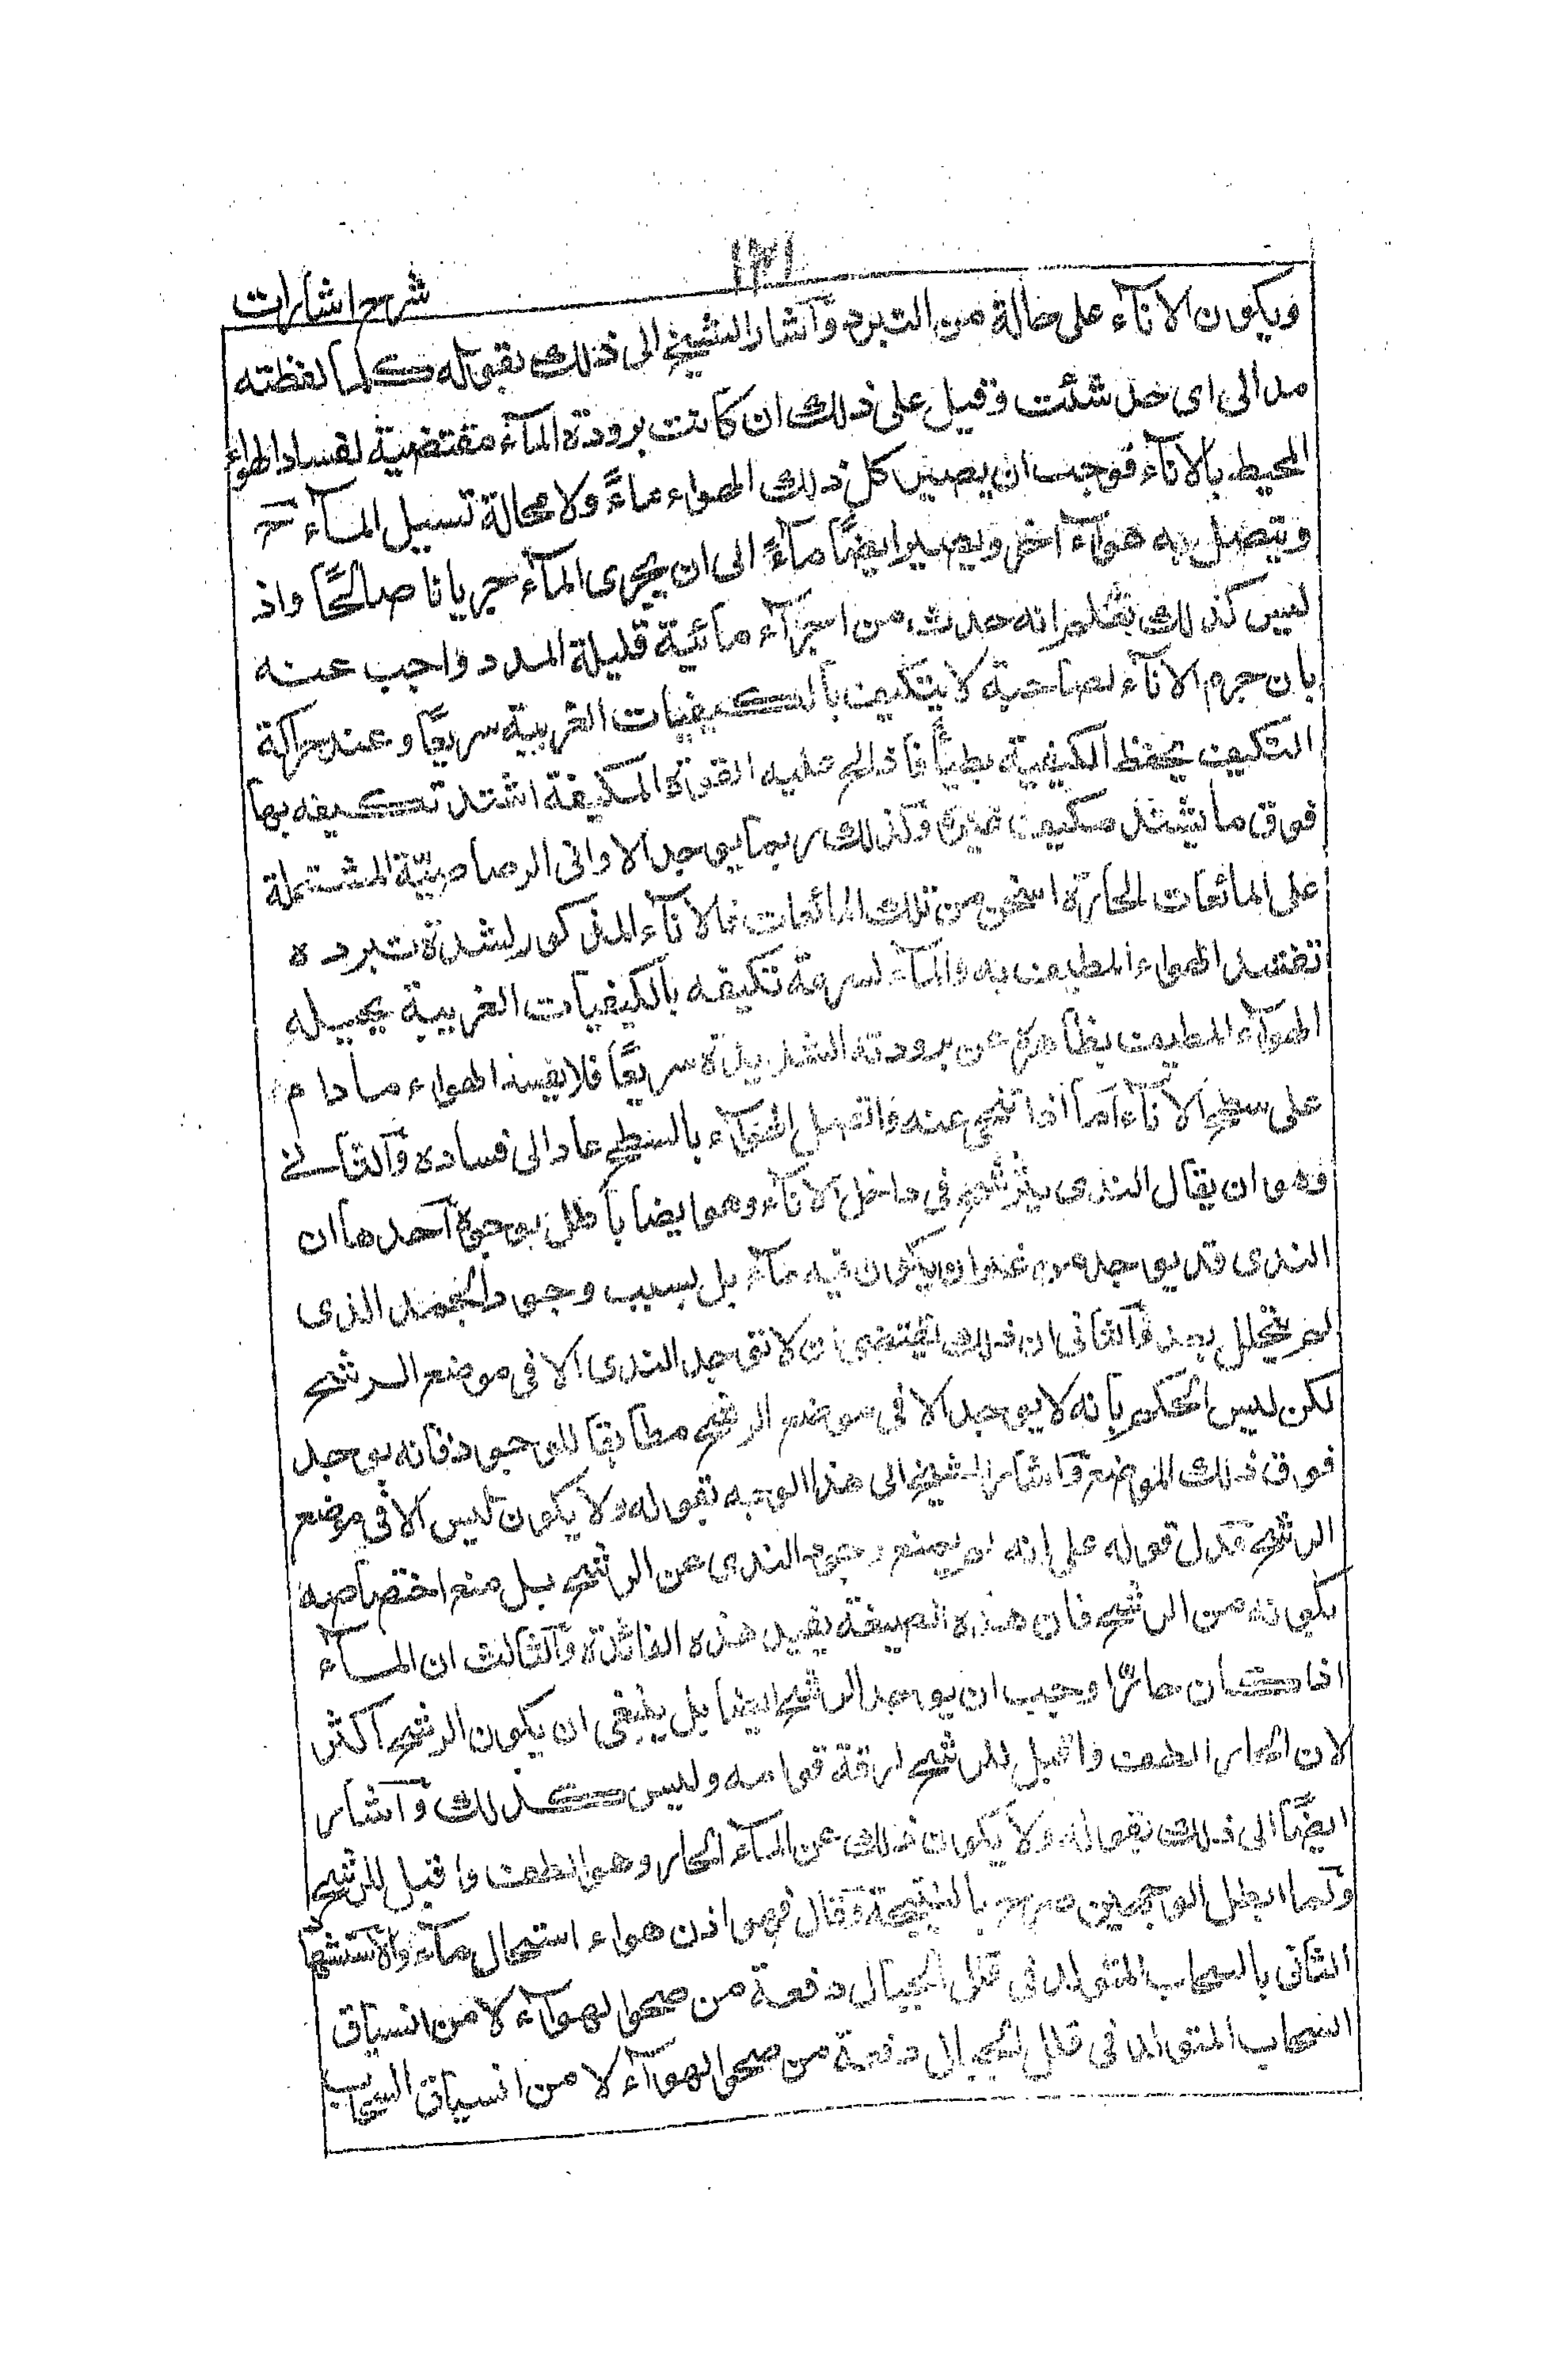 ١٣١
شرح اشارات
ويكون الاناء على حالة من التبرد وآشار الشيخ الى ذلك بقوله كلما لقطته
مد الى اى حد شئت وقيل على ذلك ان كانت برودة الماء مقتضية لفساد الهواء
المحيط بالاناء فوجب ان يصير كل ذلك الهواء ماءً ولا محالة تسيل الماء ح
ويتصل به هوآء اخر ويصير ايضًا ماءً الى ان يجرى المآء جريانا صالحًا واذ
ليس كذلك فعلم انه حدث من اجزآء مائية قليلة المدد واجب عنه
بان جرم الاناء لصلاحية لا يتكيف بالكيفيات الغريبة سريعًا وعند
التكيف يحفظ الكيفية بطيأ فاذا لح عليه القوة المكيفة اشتد تكيفه بها
فوق ما يشتد مكيف غيره وكذلك ربما يوجد الاوانى الرصاصيّة المشتملة
على المائعات الحارة اسخن من تلك المائعات فالاناء المذكور لشدة تبرده
تفسد الهواء المطيف به والماء لسرعة تكيفه بالكيفيات الغريبة يحيله
الهوآء المطيف بظاهره عن برودته الشديدة سريعًا فلا يفسد الهواء ما دام
على سطح الاناء آما اذا تنحى عنه واتصل الهوآء بالسطح عاد الى فساده وآلثانے
وهو ان يقال الندى يترشح فى داخل الاناء وهو ايضا باطل بوجوه آحدها ان
الندى قد يوجد من غير ان يكون فيه ماء بل بسبب وجود الجمد الذى
لم يتحلل بعد وآلثانى ان ذلك يقتضى ان لا توجد الندى الا فى موضع الرشح
لكن ليس الحكم بانه لا يوجد الا فى موضع الرشح مطابقا للوجود فانه يوجد
فوق ذلك الموضع وآشار الشيخ الى هذا الوجه بقوله ولا يكون ليس الا فى موضع
الرشح فدل قوله على انه لم يمنع وجود الندى عن الرشح بل منع اختصاصه
بكونه من الرشح فان هذه الصيغة يفيد هذه الفائدة وآلثالث ان الماء
اذا كان حارًّا وجب ان يوجد الرشح ايضا بل ينبغى ان يكون الرشح اكثر
لان الحار الطف واقبل للرشح لرقة قوامه وليس كذلك وآشار
ايضًا الى ذلك بقوله ولا يكون ذلك عن المآء الحار وهو الطف واقبل للرشح
ولما ابطل الوجهين صرح بالنتيجة فقال فهو اذن هواء استحال مآء والاستشها
الثانى بالسحاب المتولد فى قلل الجبال دفعة من صحو الهوآء لا من انسياق
السحاب المتولد فى قلل الجبال دفعة من صحو الهوآء لا من انسياق السحاب